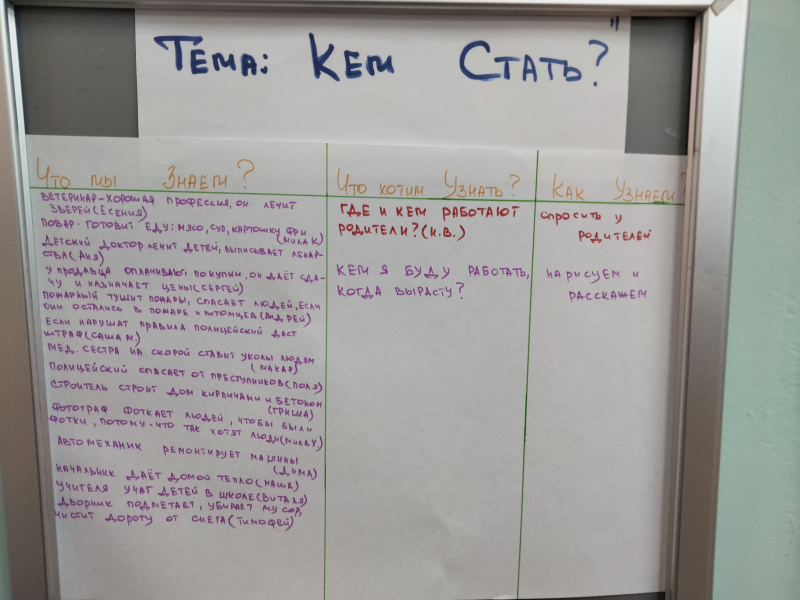 Тема: Кем Стать?
"
Что мы Знаем?
ВЕТЕРИНАР-ХОРОШАЯ ПРОФЕССИЯ, ОН ЛЕЧИТ
ЗВЕРЕЙ(ЕСЕНИЯ)
ПОВАР-ГОТОВИТ ЕДУ: МЯСО, СУП, КАРТОШКУ ФРИ
(МИЛА К)
ДЕТСКИЙ ДОКТОР ЛЕЧИТ ДЕТЕЙ, ВЫПИСЫВАЕТ ЛЕКАР-
СТВА(АНЯ)
У ПРОДАВЦА ОПЛАЧИВАЮТ ПОКУПКИ, ОН ДАЁТ СДА-
ЧУ И НАЗНАЧАЕТ ЦЕНЫ(СЕРГЕЙ)
ПОЖАРНЫЙ ТУШИТ ПОЖАРЫ, СПАСАЕТ ЛЮДЕЙ, ЕСЛИ
ОНИ ОСТАЛИСЬ В ПОЖАРЕ И ПИТОМЦЕВ(АНДРЕЙ)
ЕСЛИ НАРУШАТ ПРАВИЛА ПОЛИЦЕЙСКИЙ ДАСТ
ШТРАФ(САША М)
МЕД. СЕСТРА НА СКОРОЙ СТАВИТ УКОЛЫ ЛЮДЯМ
(МАКАР)
ПОЛИЦЕЙСКИЙ СПАСАЕТ ОТ ПРЕСТУПНИКОВ(ПОЛЯ)
СТРОИТЕЛЬ СТРОИТ ДОМ КИРПИЧАМИ И БЕТОНОМ
(ГРИША)
ФОТОГРАФ ФОТКАЕТ ЛЮДЕЙ, ЧТОБЫ БЫЛИ
ФОТКИ, ПОТОМУ-ЧТО ТАК ХОТЯТ ЛЮДИ(МИЛА У.)
АВТОМЕХАНИК РЕМОНТИРУЕТ МАШИНЫ
(ДИМА)
НАЧАЛЬНИК ДАЁТ ДОМОЙ ТЕПЛО(МАША)
УЧИТЕЛЯ УЧАТ ДЕТЕЙ В ШКОЛЕ(ВИТАЛЯ)
ДВОРНИК ПОДМЕТАЕТ, УБИРАЕТ МУСОР,
ЧИСТИТ ДОРОГУ ОТ СНЕГА(ТИМОФЕЙ)
Что хотим Узнать?
ГДЕ И КЕМ РАБОТАЮТ
РОДИТЕЛИ?(И.В.)
КЕМ Я БУДУ РАБОТАТЬ,
КОГДА ВЫРАСТУ?
Как Узнаем?
СПРОСИТЬ У
РОДИТЕЛЕЙ
НАРИСУЕМ И
РАССКАЖЕМ